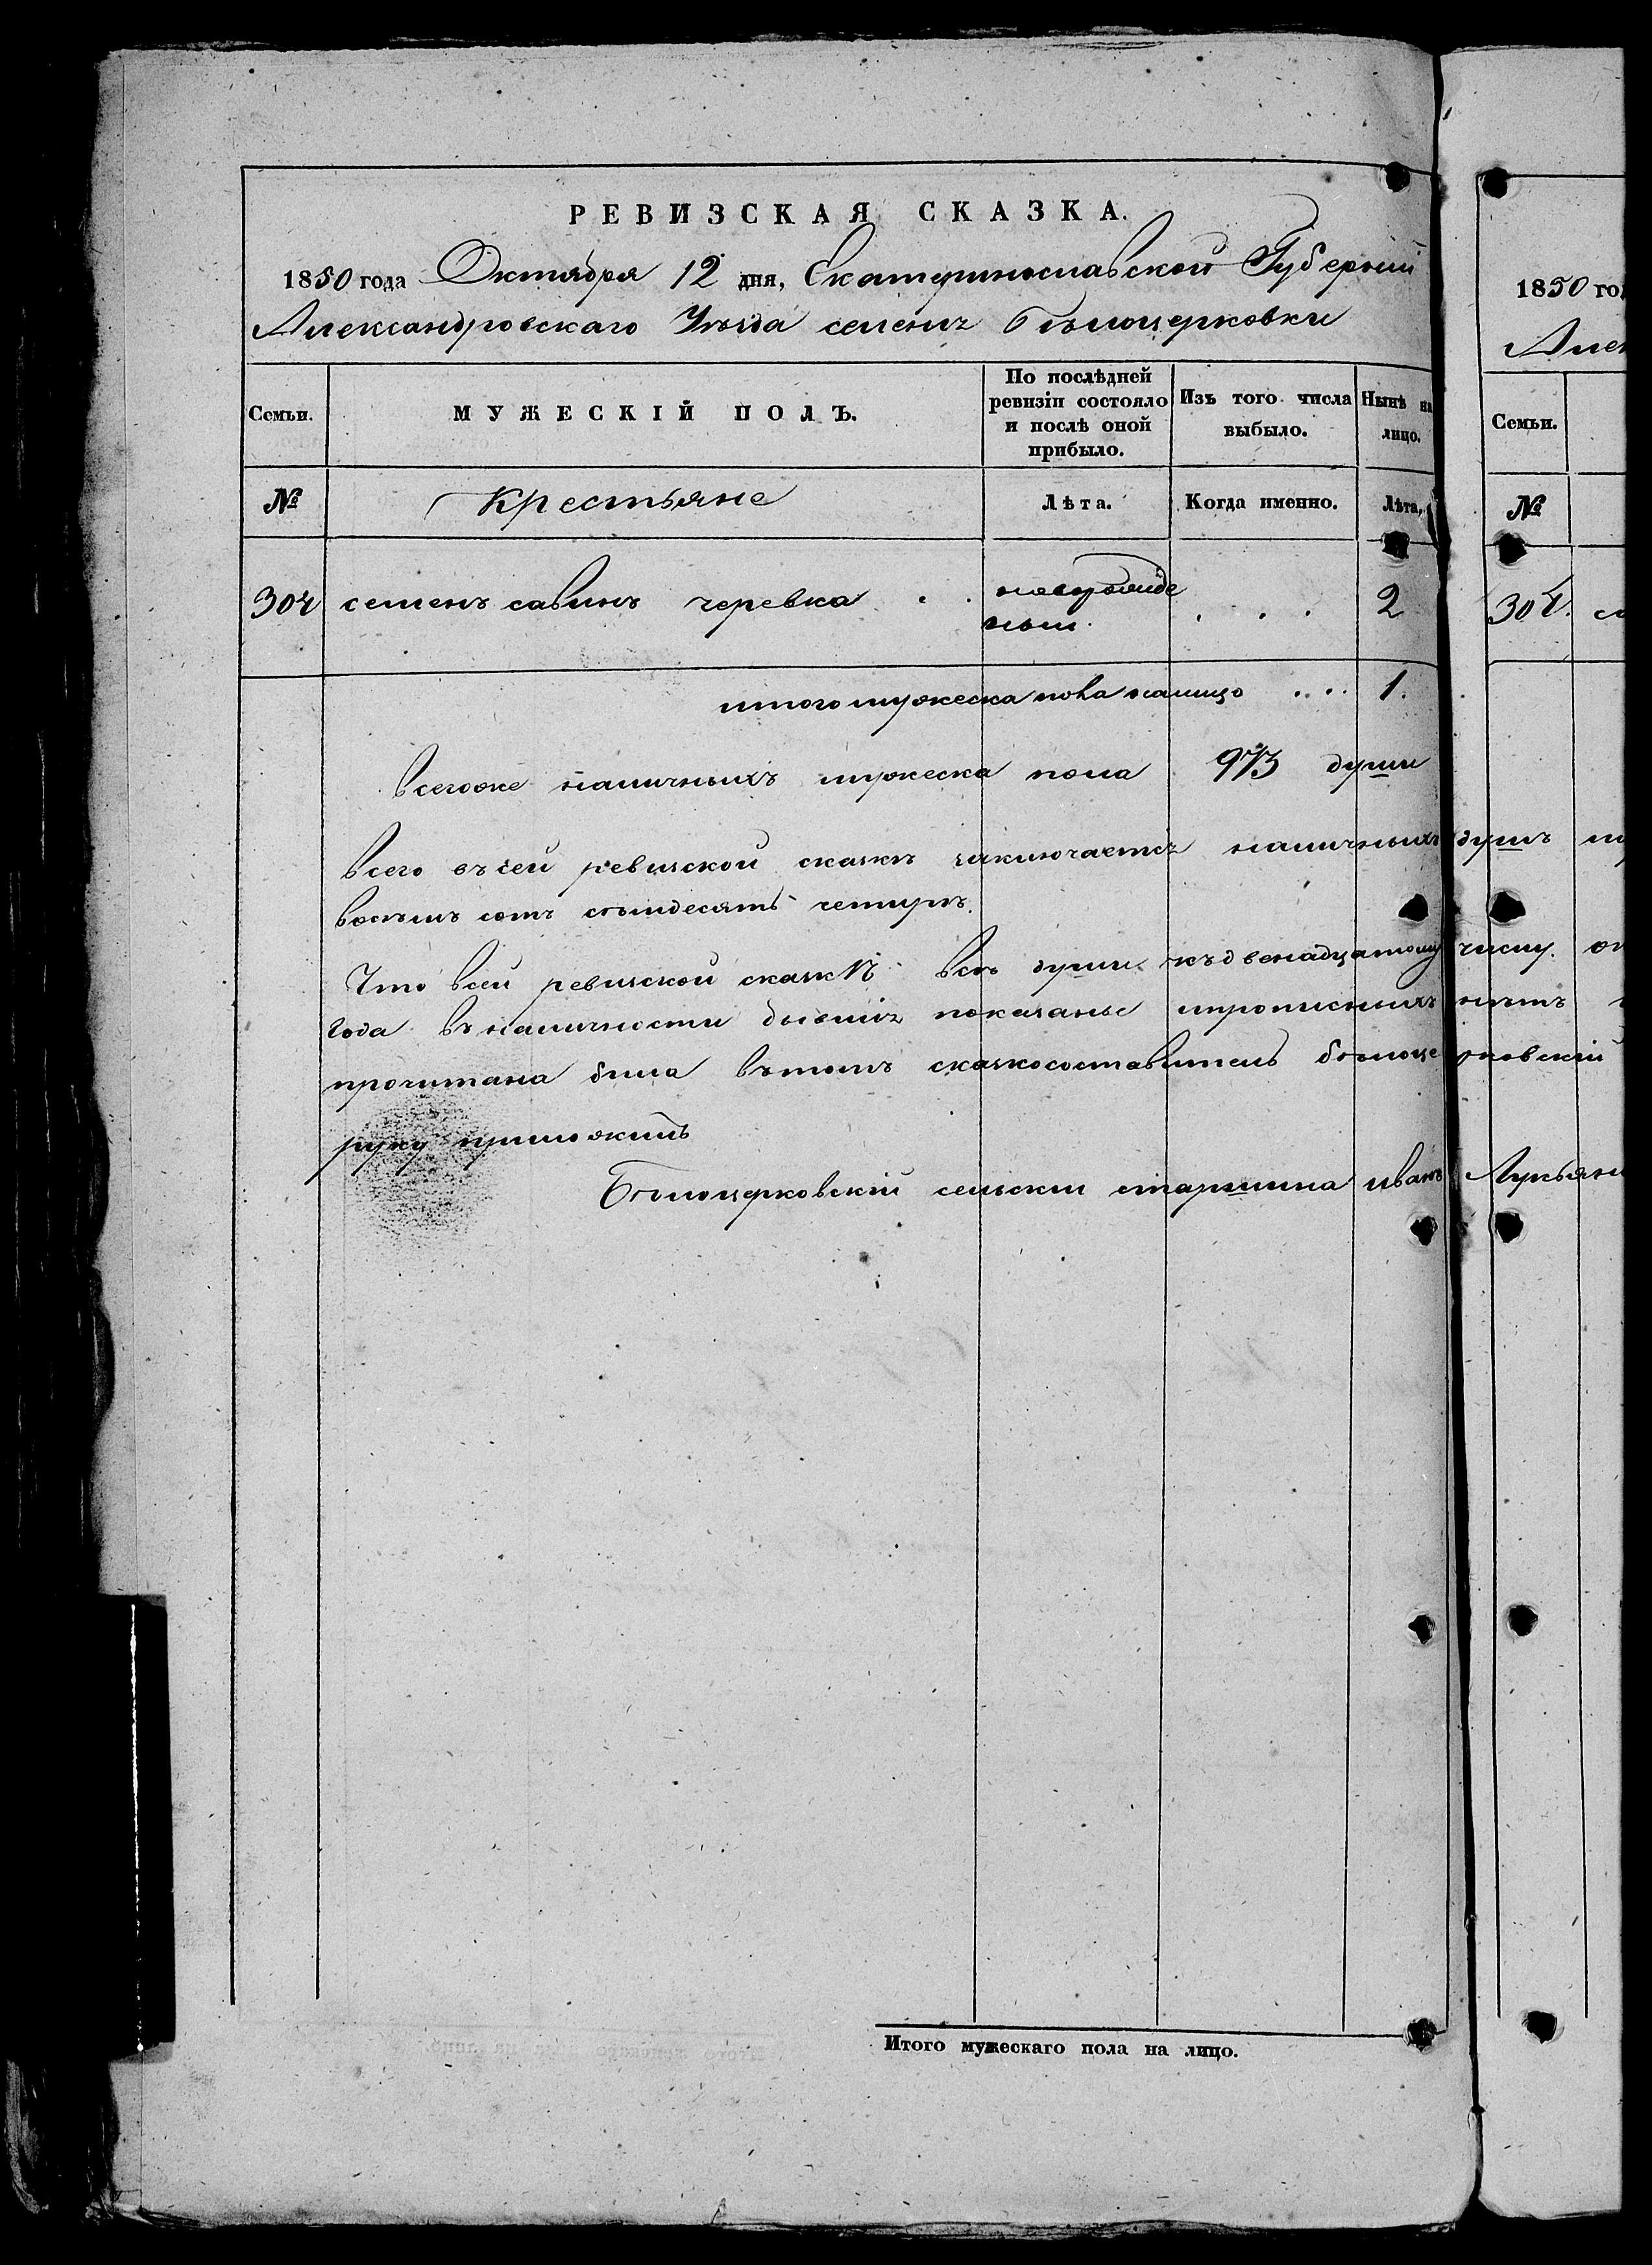 РЕВИЗСКАЯ СКАЗКА.
1850 года Октября 12 дня, Екатериносла­вской Губерній
Александровскаго Уѣзда селенія Бѣлоцерковки
Семьи.
МУЖЕСКІЙ ПОЛЪ.
По послѣдней ревизіи состояло и послѣ оной прибыло.
Изъ того числа выбыло.
Нынѣ на лицо.
№
Крестьяне
Лѣта.
Когда именно.
Лѣта.
304 семенъ савинъ черевка . . новорожде . . . 2
ный.
итого мужеска пола налицо .... 1.
Всегоже наличныхъ мужеска пола 973 души
Всего въ сей ревизской сказкѣ заключается наличныхъ душъ
восѣмъ сотъ сѣмдесятъ четыре.
Что всей ревизской сказкѣ всѣ души къ двенадцатому числу.
года въ наличности бывшія показаны ипрописныхъ нѣтъ
прочитана была вътомъ сказкосоставитель бѣлоцерковскій
руку приложилъ
Бѣлоцерковскій сельскій старшина иванъ Лукьян
Итого мужескаго пола на лицо.
1850 го
Алек
Семьи.
№
304.